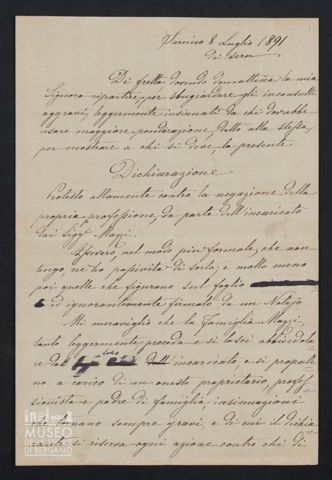 Sarnico 8 Luglio 1891
di sera
Di fretta dovendo domattina la mia
Signora ripartire, per sbugiardare gli inconsulti
aggravi, leggermente insinuati da chi dovrebbe
usare maggiore ponderazione, dallo alla stessa,
per mostrare a chi si deve la presente.
Dichiarazione
Protesto altamente contro la negazione della
propria professione, da parte dell'incaricato
dai Sigg.i Mazzi.
Assevero, nel modo più formale, che non
tengo, nè ho passività di sorta, e molto meno
poi quelle che figurano sul foglio
ed ignorantemente firmato da un Notajo
Mi meraviglio che la Famiglia Mazzi,
tanto leggermente proceda e si lasci abbindola
re dal loro incaricato e si propali
no a carico di un onesto proprietario, profes
sionista e padre di famiglia insinuazioni
che tornano sempre gravi, e di cui il dichia
rante si riserva ogni azione contro chi di
MUSEO
DELLE STORIE
DI BERGAMO